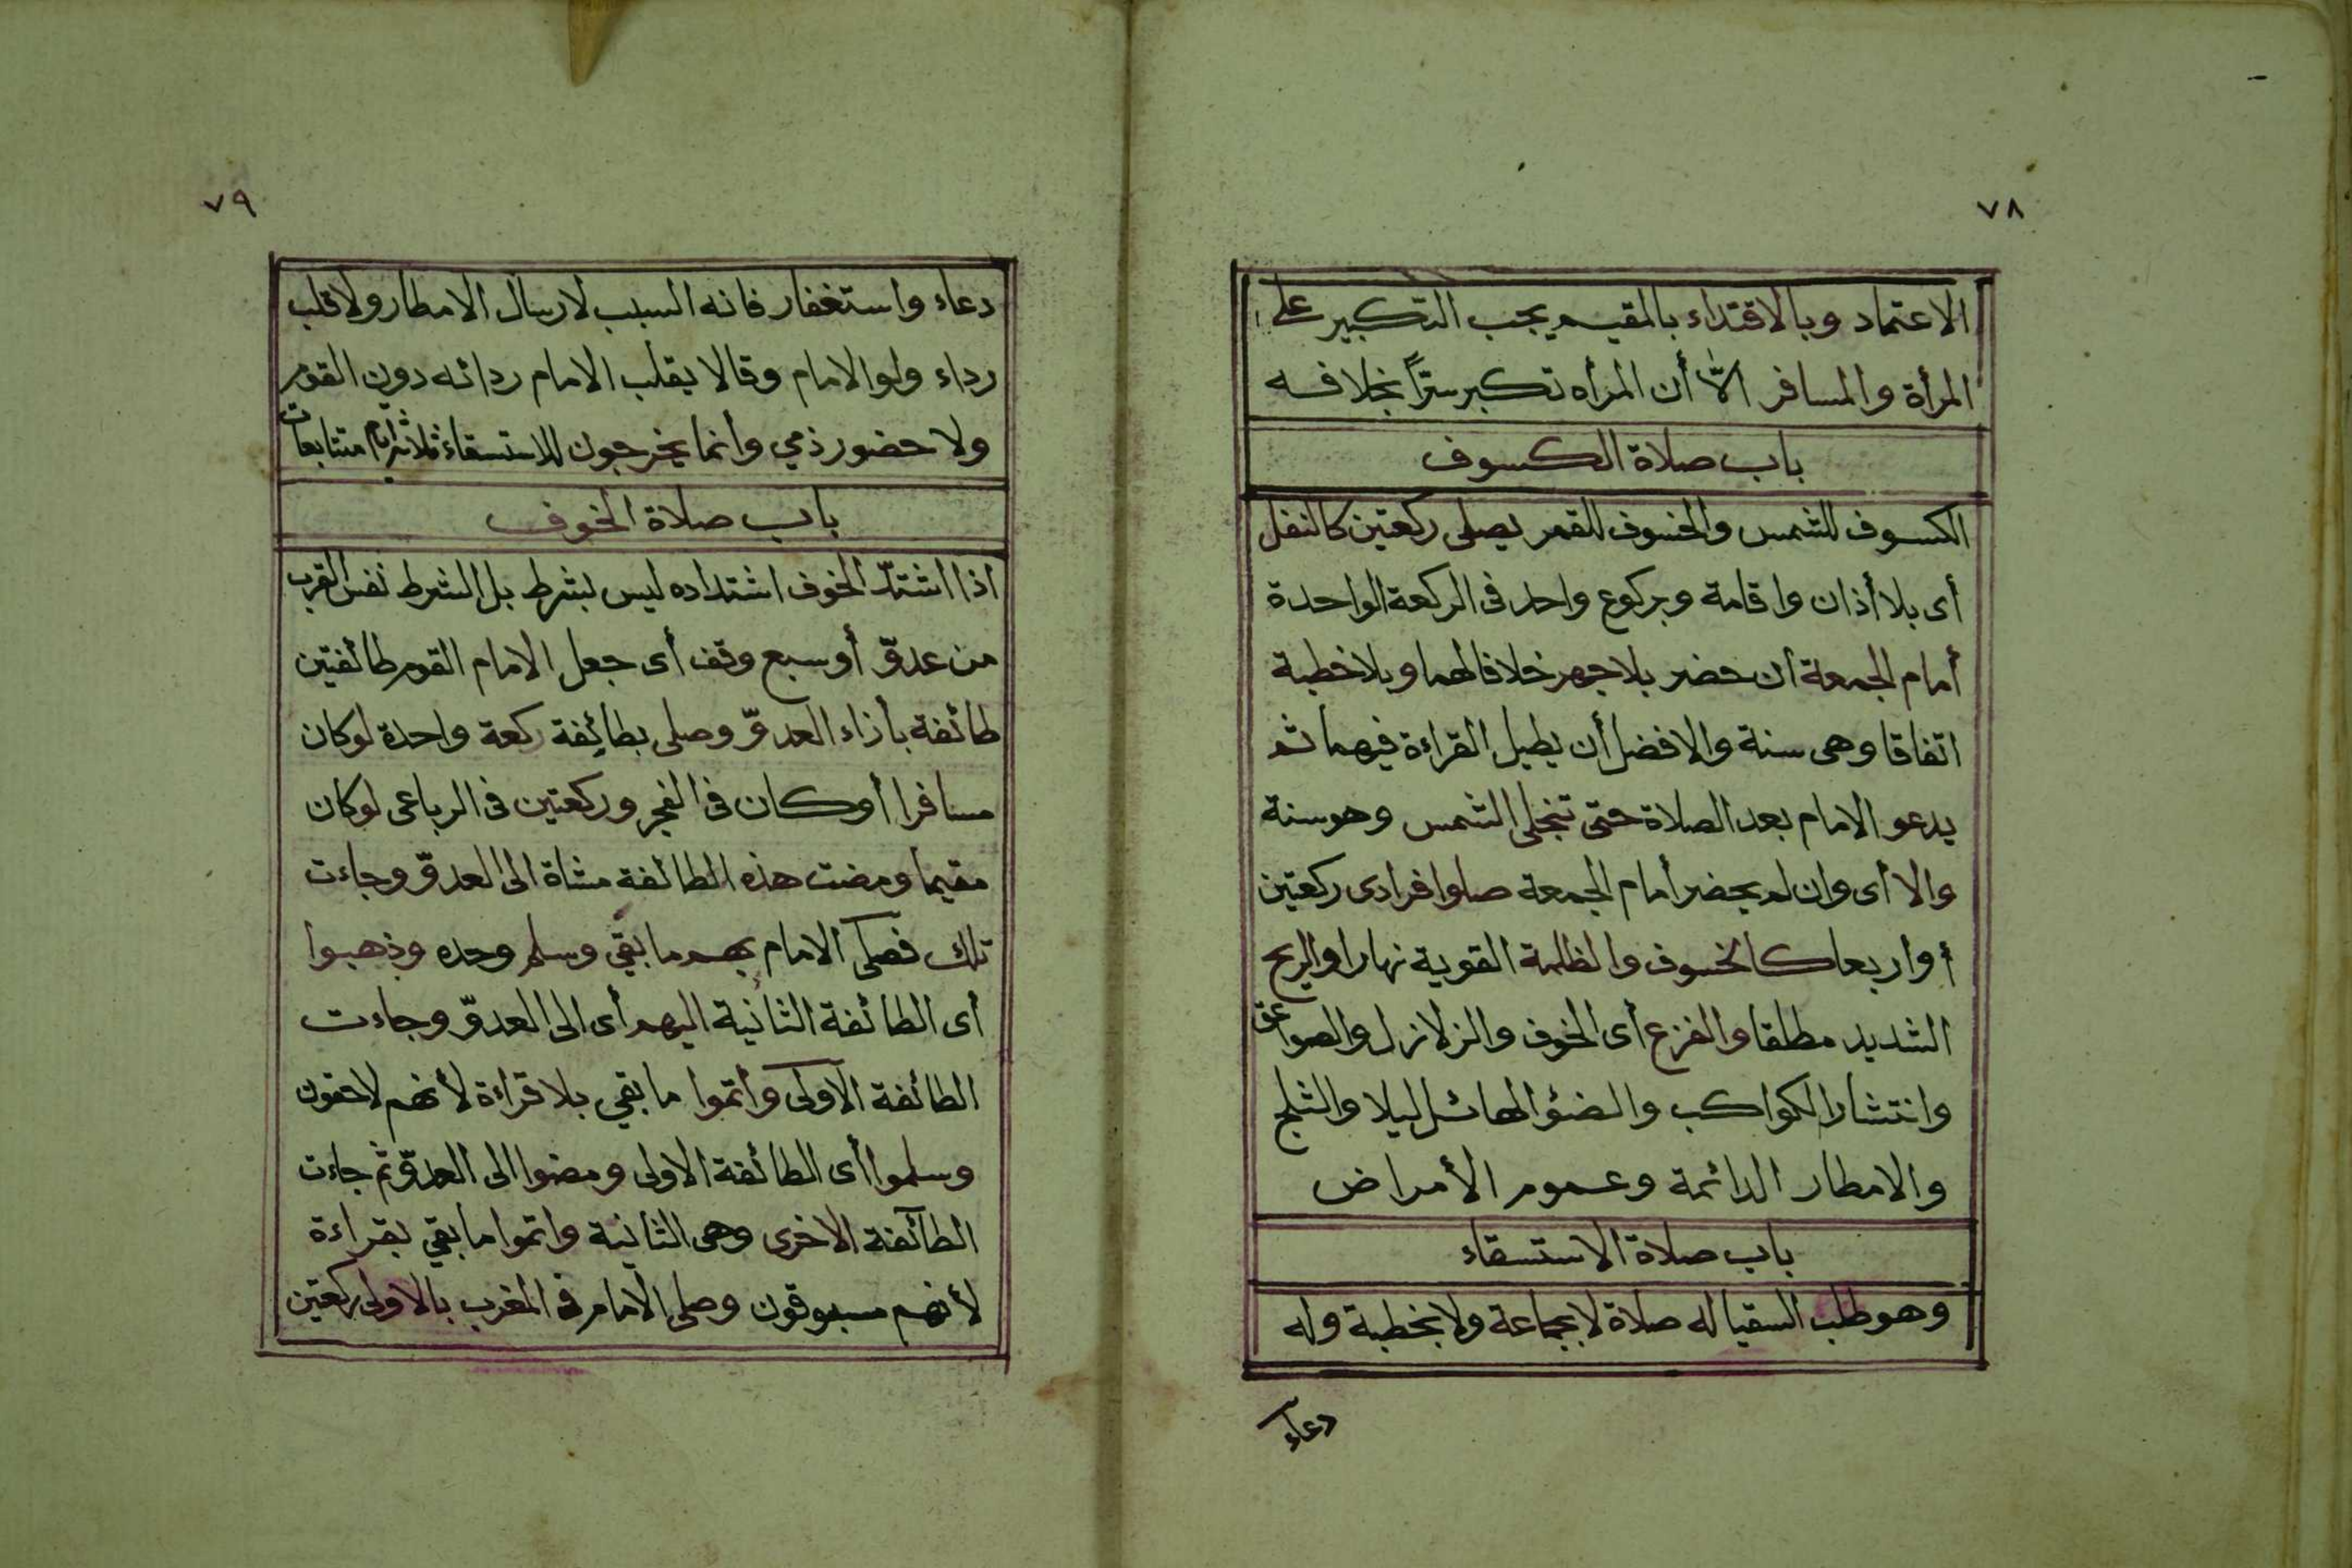 ٧٨
الاعتماد وبالاقتداء بالمقيم يجب التكبير على
المرأة والمسافر الّا أن المرأه تكبر سرّاً بخلافه
باب صلاة الكسوف
الكسوف للشمس والخسوف للقمر يصلى ركعتين كالنفل
أى بلا أذان واقامة وبركوع واحد فى الركعة الواحدة
أمام الجمعة ان حضر بلا جهر خلافا لهما وبلا خطبة
اتفاقا وهى سنة والافضل أن يطيل القراءة فيهما ثم
يدعو الامام بعد الصلاة حتى تنجلى الشمس وهو سنة
والا أى وان لم يحضر أمام الجمعة صلوا فرادى ركعتين
أو اربعا كالخسوف والظلمة القوية نهارا والريح
الشديد مطلقا والفزع أى الخوف والزلازل والصواعق
وانتشار الكواكب والضؤ الهائل ليلا والثلج
والامطار الدائمة وعموم الأمراض
باب صلاة الاستسقاء
وهو طلب السقيا له صلاة لا بجماعة ولا بخطبة وله
دعاء
٧٩
دعاء واستغفار فانه السبب لارسال الامطار ولا قلب
رداء ولو الامام وقالا يقلب الامام ردائه دون القوم
ولا حضور ذمي وانما يخرجون للاستسقاء ثلاثة ايام متتابعات
باب صلاة الخوف
اذا اشتدّ الخوف اشتداده ليس بشرط بل الشرط نفس القرب
من عدوّ أو سبع وقف أى جعل الامام القوم طائفتين
طائفة بأزاء العدوّ وصلى بطائفة ركعة واحدة لو كان
مسافرا أو كان فى الفجر وركعتين فى الرباعى لو كان
مقيما ومضت هذه الطائفة مشاة الى العدوّ وجاءت
تلك فصلى الامام بهم ما بقي وسلم وحده وذهبوا
أى الطائفة الثانية اليهم أى الى العدوّ وجاءت
الطائفة الاولى وأتموا ما بقي بلا قراءة لأنهم لاحقون
وسلموا أى الطائفة الاولى ومضوا الى العدوّ ثم جاءت
الطائفة الاخرى وهى الثانية واتموا ما بقي بقراءة
لأنهم مسبوقون وصلى الامام فى المغرب بالاولى ركعتين